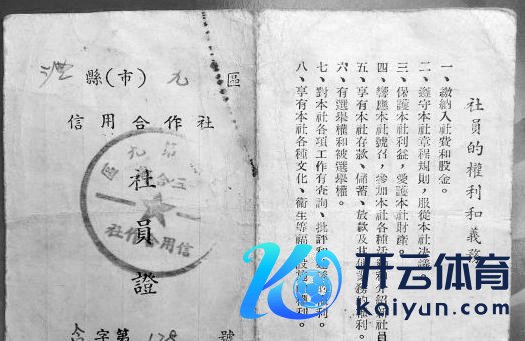 縣(市)九區
信用合作社
社員證
字第128號
社員的權利和義務
一、繳納入社費和股金。
二、遵守本社章程規則,服從本社決議
三、保護本社利益,愛護本社財產。
四、響應本社號召,參加本社各種活介紹新社員
五、享有本社存款、儲蓄、放款及其業務的權利。
六、有選舉權和被選舉權。
七、對本社各項工作有查詢、批評和的權利。
八、享有本社各種文化、衛生等福設施權利。
开云体育
kaiyun.com